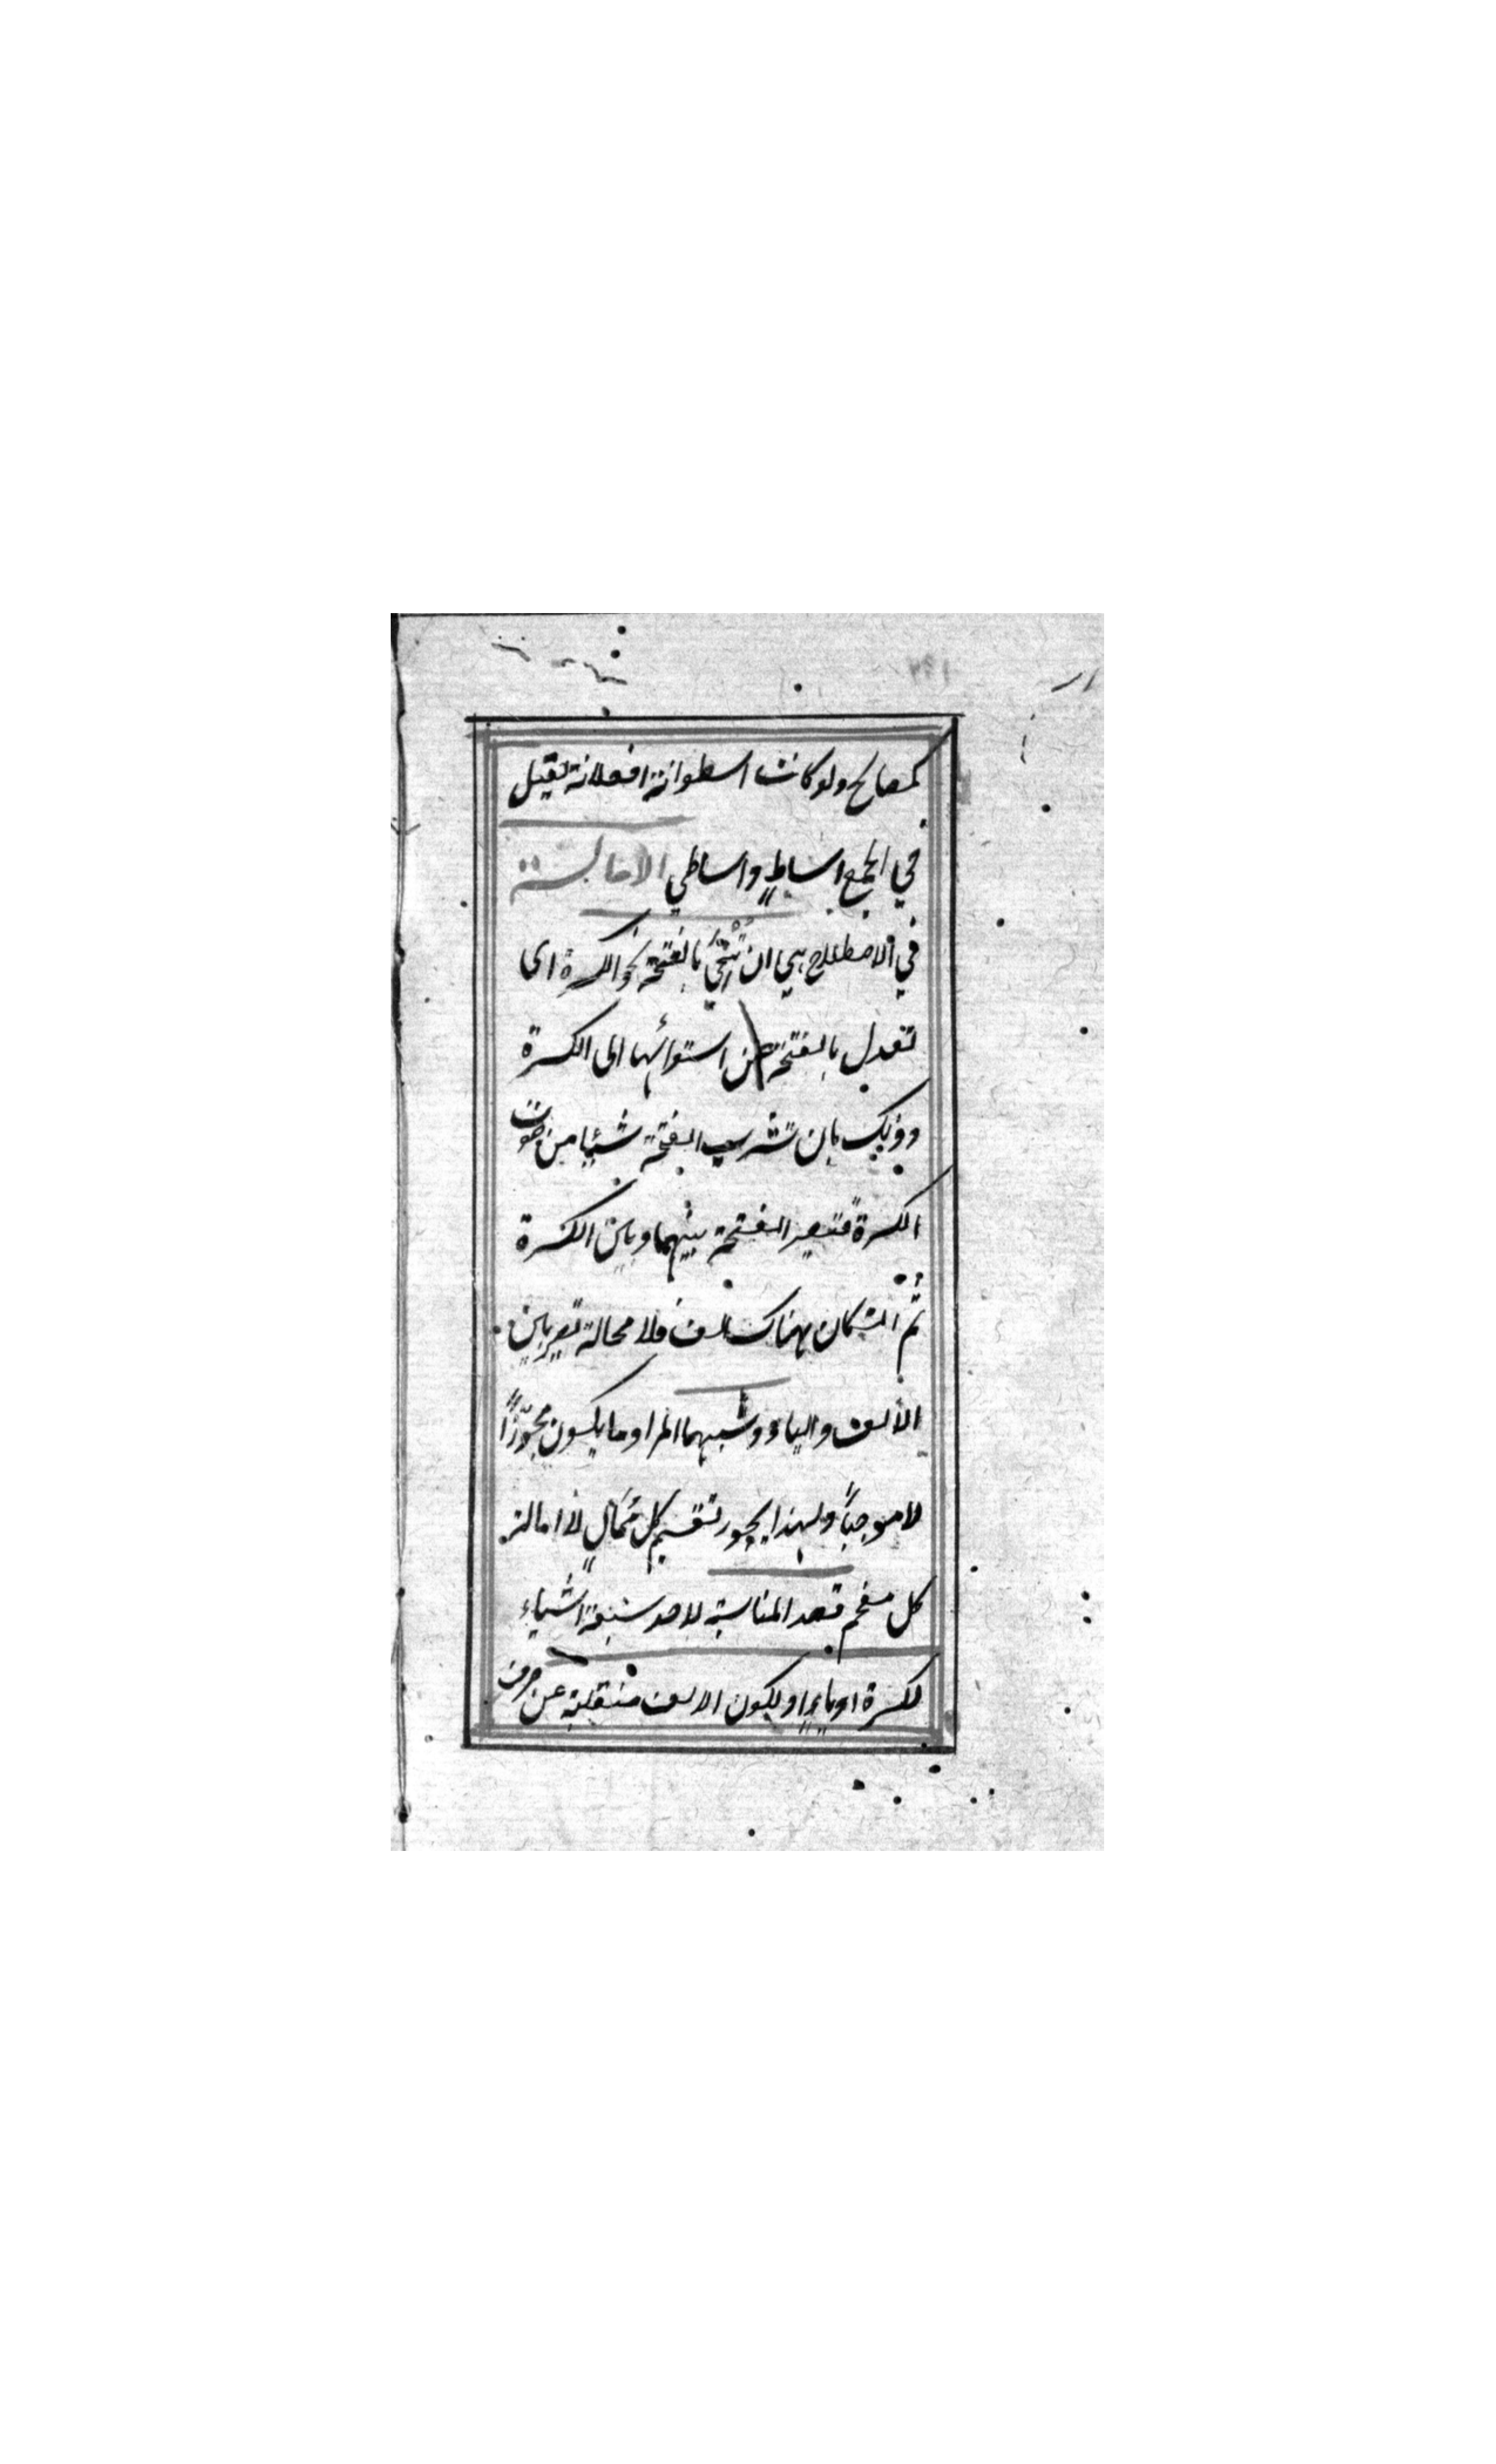 كمصالح ولو كانت اسطوانة افعلانة لقيل
في الجمع اساطٍ واساطي الامالة
في الاصطلاح هي ان تُنْحَى بالفتحة نحو الكسرة اى
تعدل بالفتحة عن استوائها الى الكسرة
وذلك بان تشرب الفتحة شيئا من صوت
الكسرة فتصير الفتحة بينهما وبين الكسرة
ثم ان كان هناك الف فلا محالة تصير بين
الألف والياء وسببها المراد ما يكون مجوّزاً
لا موجباً ولهذا يجوز تفخيم كل مُمَالٍ لا امالة
كل مفخم قصد المناسبة لاحد سبعة اشياء
لكسرة او ياءٍ او لكون الالف منقلبة عن حرف